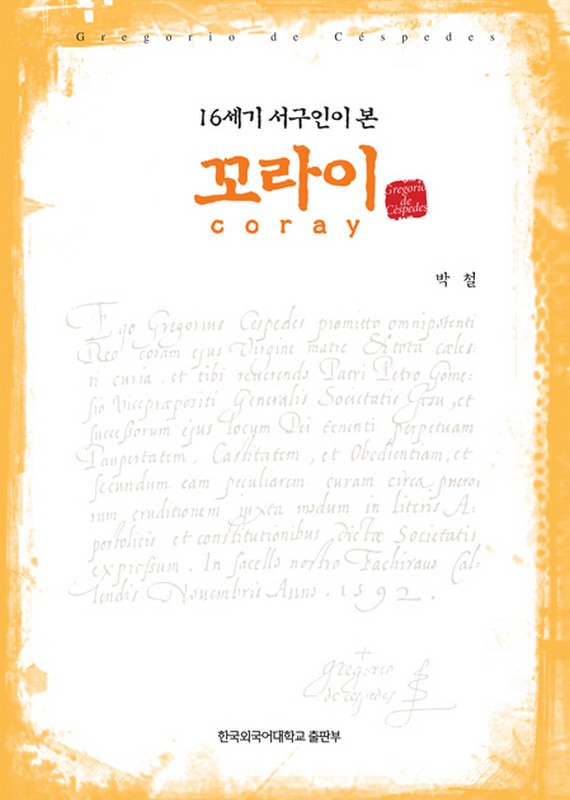 Gregorio de Céspedes
16세기 서구인이 본
꼬라이
coray
Gregorio
de
Céspedes
박 철
Ego Gregorius Cespedes promitto omnipotenti
Deo coram ejus Virgine matre & tota cæles-
ti curia, et tibi reverendo Patri Petro Gome-
sio Vicepræpositi Generalis Societatis Jesu, et
successorum ejus locum Dei tenenti perpetuam
Paupertatem, Castitatem, et Obedientiam, et
secundum eam peculiarem curam circa pueror-
rum eruditionem juxta modum in literis A-
postolicis et constitutionibus dictæ Societatis
expressum. In sacello nostro Fachiraus Cal-
lendis Novembris Anno. 1592.
gregorio
de cespedes
한국외국어대학교 출판부